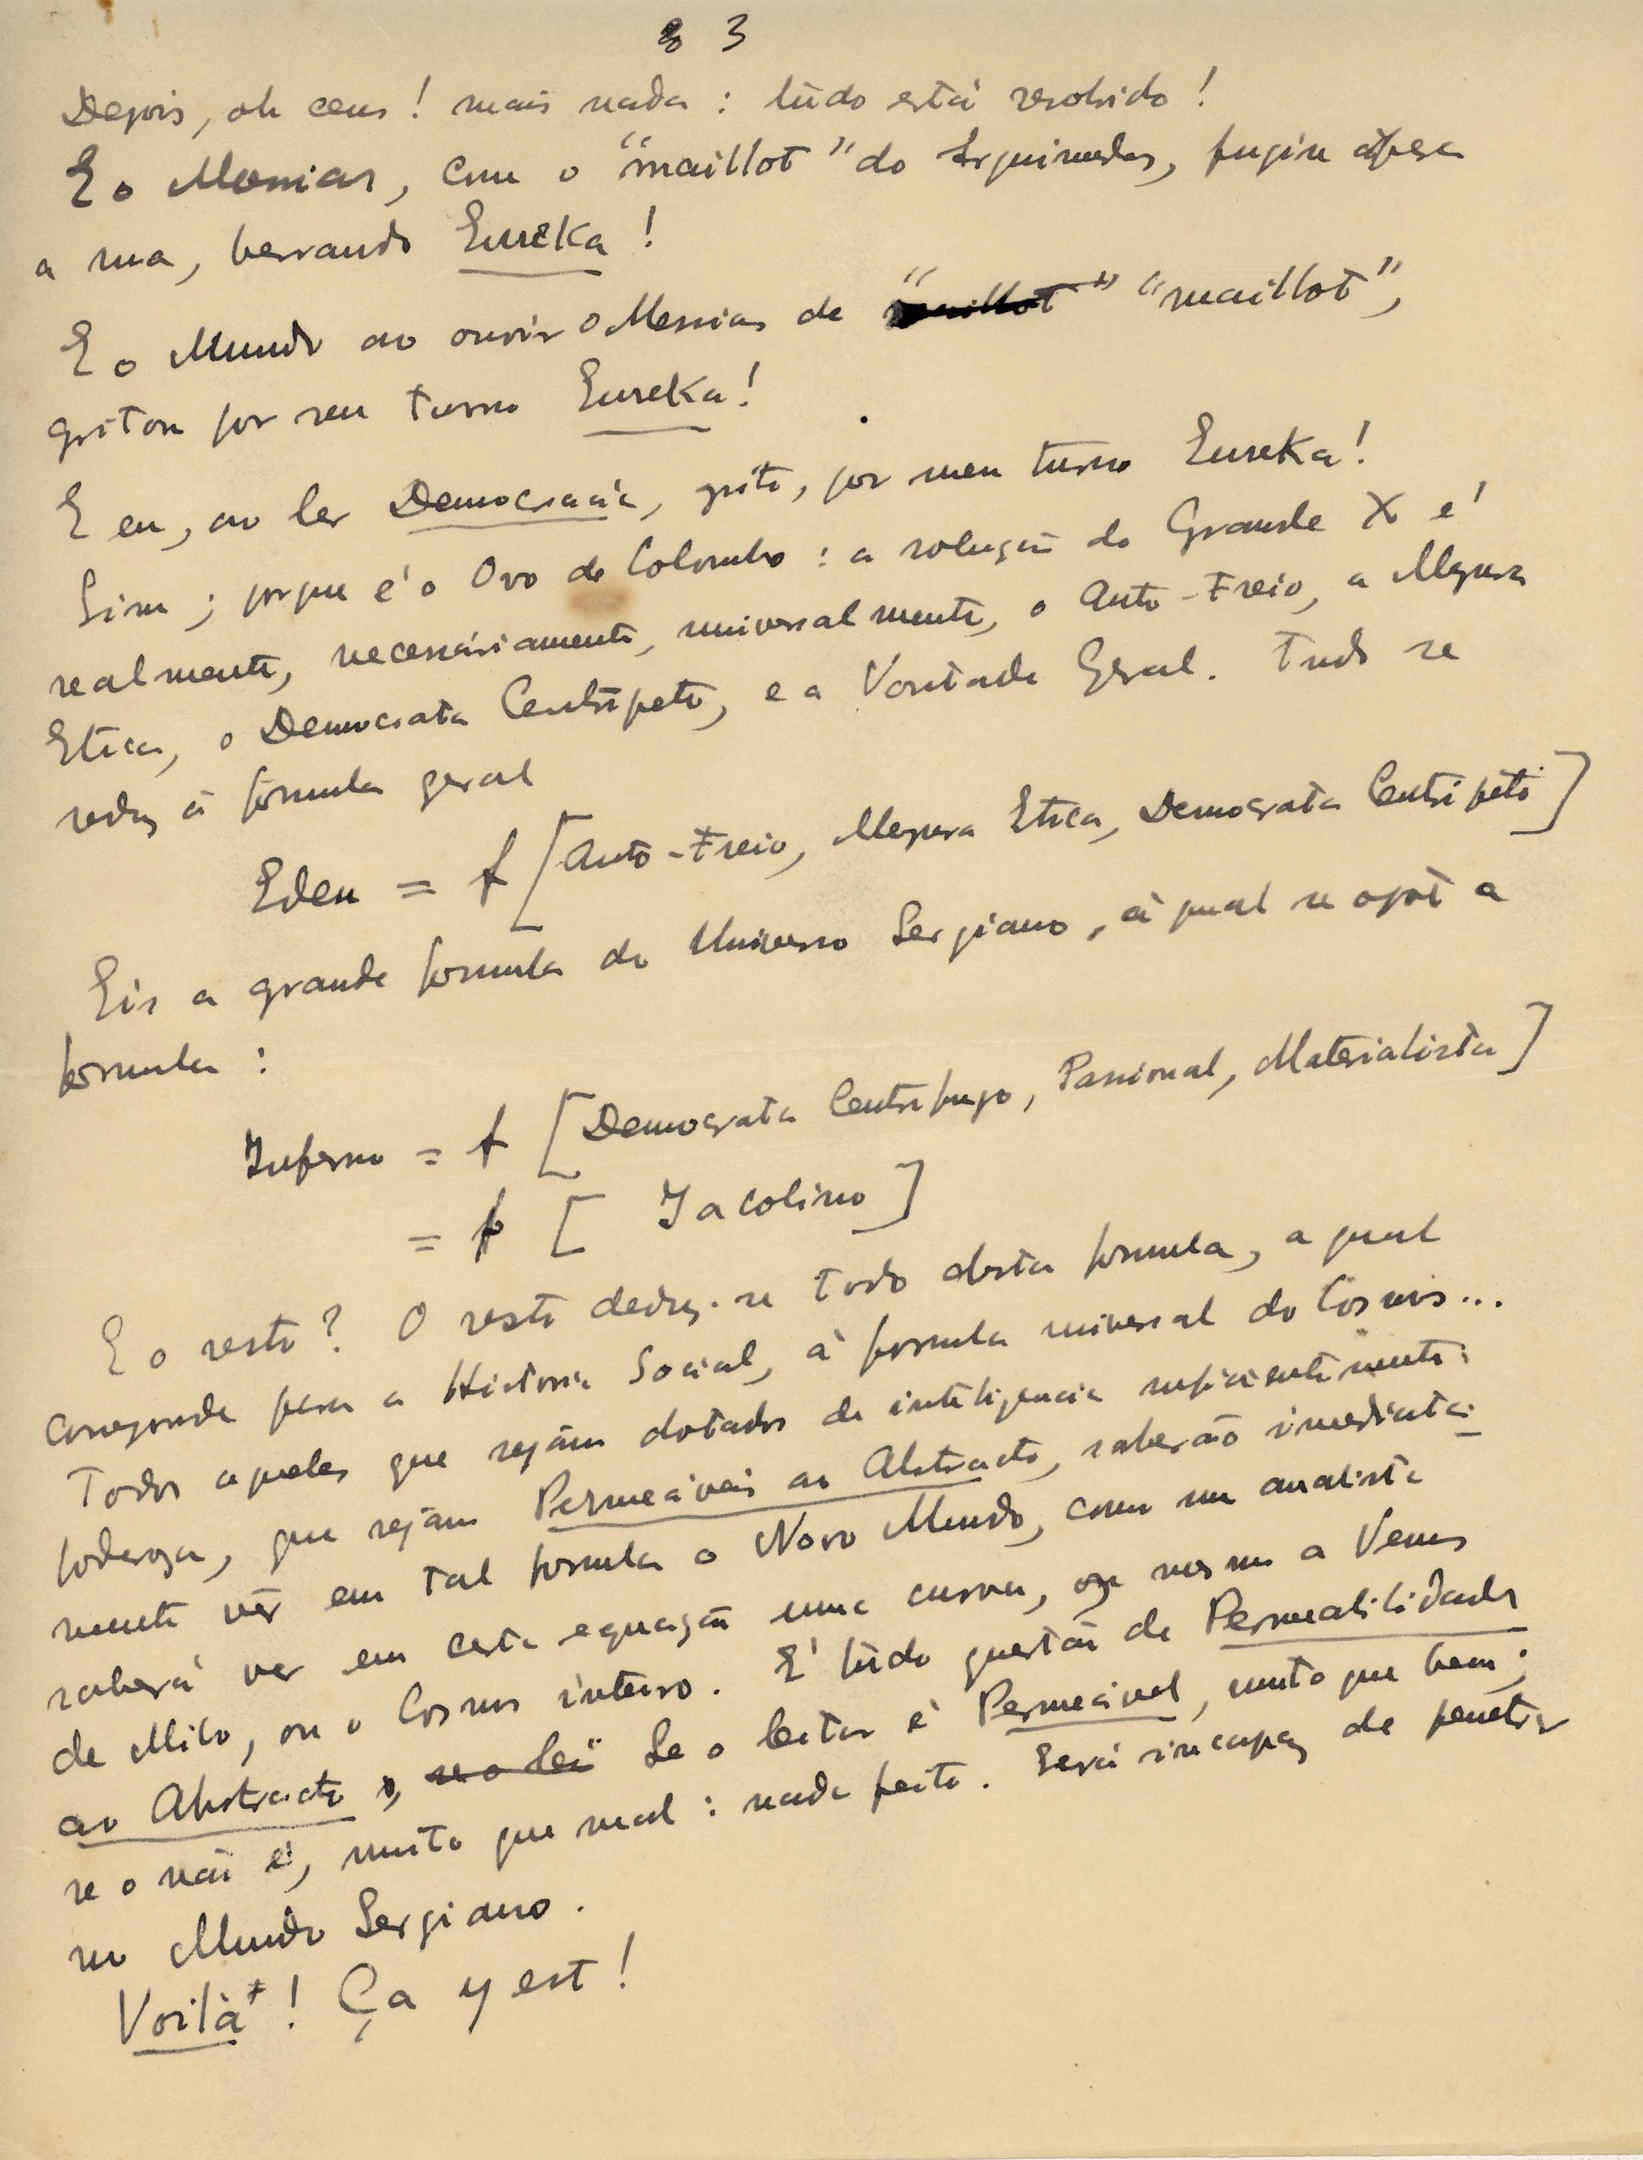 3
Depois, oh ceus! mais nada: tudo está resolvido!
E o Messias, com o "maillot" do Arquimedes, fugiu
a rua, berrando Eureka!
E o Mundo ao ouvir o Messias de "maillot" "maillot",
gritou por seu turno Eureka!
E eu, ao ler Democracia, grito, por meu turno Eureka!
Sim; porque é o Ovo de Colombo: a solução do Grande X é
realmente, necessáriamente, universalmente, o Auto-Freio, a Megera
Etica, o Democrata Centripeto, e a Vontade Geral. Tudo se
reduz á fórmula geral
Eden = f [Auto-Freio, Megera Etica, Democrata Centripeto]
Eis a grande formula do Universo Sergiano, á qual se opõe a
formula:
Inferno = f [Democrata Centrifugo, Passional, Materialista]
= f [Jacobino]
E o resto? O resto deduz-se todo desta formula, a qual
corresponde para a Historia Social, à formula universal do Cosmos...
Todos aqueles que sejam dotados de inteligencia suficientemente
poderosa, que sejam Permeáveis ao Abstracto, saberão imediata-
mente vêr em tal formula o Novo Mundo, como um analista
saberá ver em certa equação uma curva, ou mesmo a Venus
de Milo, ou o Cosmos inteiro. E' tudo questão de Permeabilidade
ao Abstracto, se o lei Se o leitor é Permeável, muito que bem;
se o não é, muito que mal: nada feito. Será incapaz de penetrar
no Mundo Sergiano.
Voilà! Ça y est!